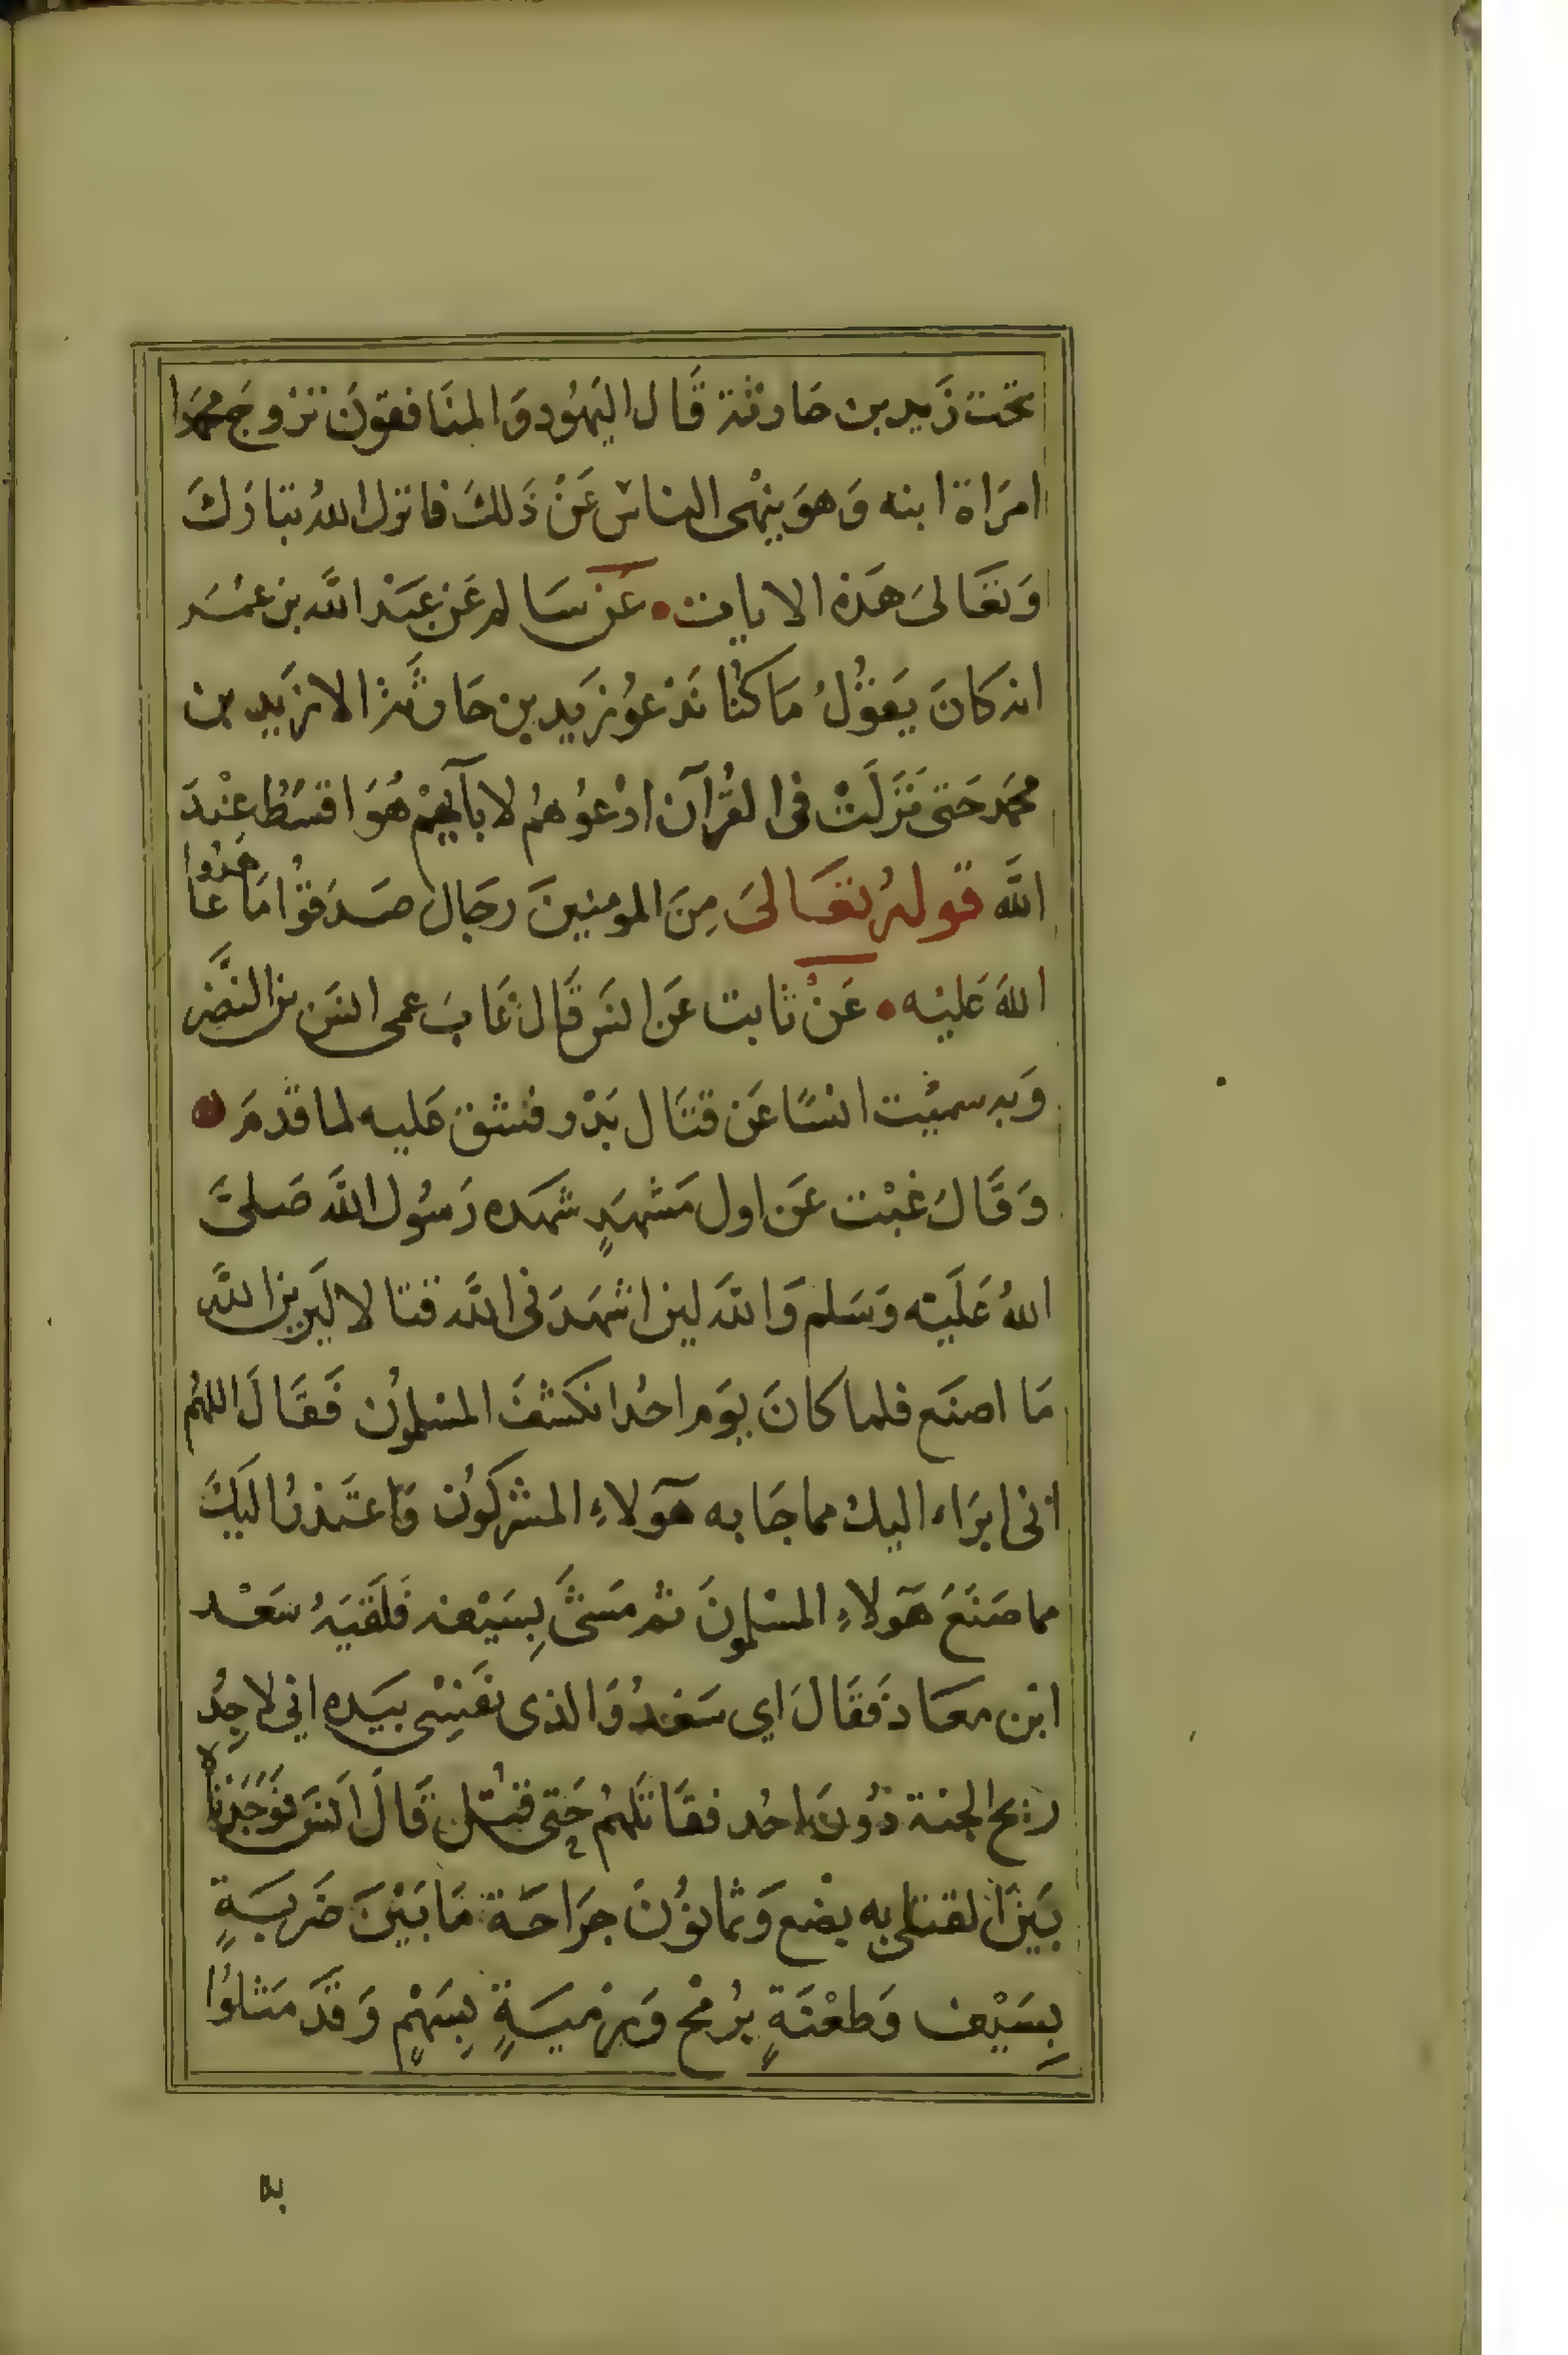 تحت زَيد بن حَارثة قَال اليَهُود وَالمنَافقونَ تزوجَ محمدا
امرَاة ابنه وَهوَ ينهْى الناسَ عَنْ ذَلكَ فانزل اللهُ تبَارَكَ
وَتعَالىَ هَذه الايات عَن سَالم عَن عَبَد اللَّه بن عمُر
انه كانَ يَقوْلُ مَا كنُا نَدعوُ زيَد بن حَارثة الا زَيد بن
محمد حَتى نَزَلَتْ في القُرآن ادْعوُهمُ لابآيهِمْ هُوَ اقسَطُ عِنْدَ
اللَّه قولهُ تعَالىَ مِنَ المومنِينَ رجَال صَدَقوُا مَا عَاهَدُوا
اللهَ عَليْه عَنْ ثابت عَن انسَ قَال غَابَ عمى انسَ بن النَّضِر
وَبه سميْت انسًا عَن قتَال بَدْر فشق عَليه لما قدمَ
وَقَالَ غبْت عَن اول مَشهَدٍ شهَده رَسُول اللَّه صَلىَّ
اللهُ عَلَيْه وَسَلم وَاللَّه لين اشهَدَنى اللَّه قتالا ليَرين اللَّه
مَا اصنَع فلما كانَ يوَم احُد انكَشفَ المسْلموُن فَقَالَ اللهُم
اني ابرَاء اليك مما جَا به هَآولاءِ المشركوُن وَاعتَذرُ اليَكَ
مما صَنَعَ هَآولاءِ المسْلموُنَ ثم مَشىَّ بِسَيْفه فَلَقيَهُ سَعْد
ابْن معَاذ فَقَالَ اي سَعْدُ وَالذى نفَسِىْ بيَده اني لاجِدُ
ريح الجنة دوُنَ احُد فقَاتَلهُم حَتِى قتُل قَالَ انسَ فوَجَدْنَاهُ
بَينَ القتلى به بضْع وَثمانوُنَ جرَاحَة مَا بَيْنَ ضَربَةٍ
بِسَيْف وَطعْنَةٍ برُمْح وَرميَةٍ بِسَهْمٍ وَقدَ مَثلوُا
به